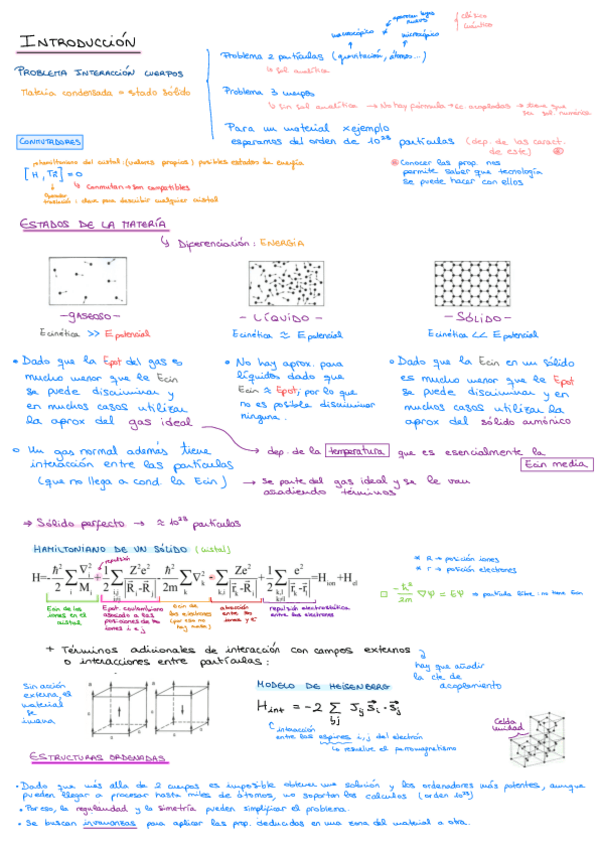 INTRODUCCIÓN
PROBLEMA INTERACCIÓN CUERPOS
Materia condensada = estado sólido
macroscópico
microscópico
clásico
cuántico
Problema 2 partículas (gravitación, átomos...)
↳ sol. analítica
Problema 3 cuerpos
↳ sin sol. analítica → No hay fórmula → Ec acopladas → tiene que ser sol. numérica
Para un material x ejemplo
esperamos del orden de 10²³ partículas (dep. de las caract. de este)
Conocer las prop. nos
permite saber que tecnología
se puede hacer con ellos
CONMUTADORES
hamiltoniano del cristal: (valores propios) posibles estados de energía
[H, T] = 0
↳ Conmutan → son compatibles
Operador traslación: clave para describir cualquier cristal
ESTADOS DE LA MATERIA
↳ Diferenciación: ENERGÍA
- GASEOSO -
Ecinética >> Epotencial
- LÍQUIDO -
Ecinética ≈ Epotencial
- SÓLIDO -
Ecinética << Epotencial
• Dado que la Epot del gas es
mucho menor que la Ecin
se puede discriminar y
en muchos casos utilizar
la aprox del gas ideal
• No hay aprox. para
líquidos dado que
Ecin ≈ Epot, por lo que
no es posible discriminar
ninguna...
• Dado que la Ecin en un sólido
es mucho menor que la Epot
se puede discriminar y en
muchos casos utilizar la
aprox del sólido armónico
• Un gas normal además tiene
interacción entre las partículas
(que no llega a cond. la Ecin)
dep. de la temperatura que es esencialmente la Ecin media
→ Se parte del gas ideal y se le van
añadiendo términos
⇒ Sólido perfecto → ≈ 10²³ partículas
HAMILTONIANO DE UN SÓLIDO (cristal)
repulsión
H=-ħ²/2 Σi ∇i²/Mi + 1/2 Σi,j i≠j Z²e²/|Ri-Rj| - ħ²/2m Σk ∇k² - Σk,i Ze²/|rk-Ri| + 1/2 Σk,l k≠l e²/|rk-rl| =Hion+Hel
Ecin de los
iones en el
cristal
Epot. coulombiano
asociado a las
posiciones de los
iones i e j
Ecin de
los electrones
(por eso no
hay masa)
atracción
entre los
iones y e⁻
repulsión electrostática
entre los electrones
* R → posición iones
* r → posición electrones
-ħ²/2m ∇φ = Eφ ⇒ partícula libre: no tiene Ecin
+ Términos adicionales de interacción con campos externos
o interacciones entre partículas:
hay que añadir
la cte. de
acoplamiento
Sin acción
externa, el
material
se
imana
MODELO DE HEISENBERG
Hint = -2 Σ Jij Si · Sj
interacción
entre los espines i,j del electrón
↳ resuelve el ferromagnetismo
Celda
unidad
ESTRUCTURAS ORDENADAS
• Dado que más allá de 2 cuerpos es imposible obtener una solución y los ordenadores más potentes, aunque
pueden llegar a procesar hasta miles de átomos, no soportan los cálculos (orden 10²³)
• Por eso, la regularidad y la simetría pueden simplificar el problema.
• Se buscan invarianzas para aplicar las prop. deducidas en una zona del material a otra.